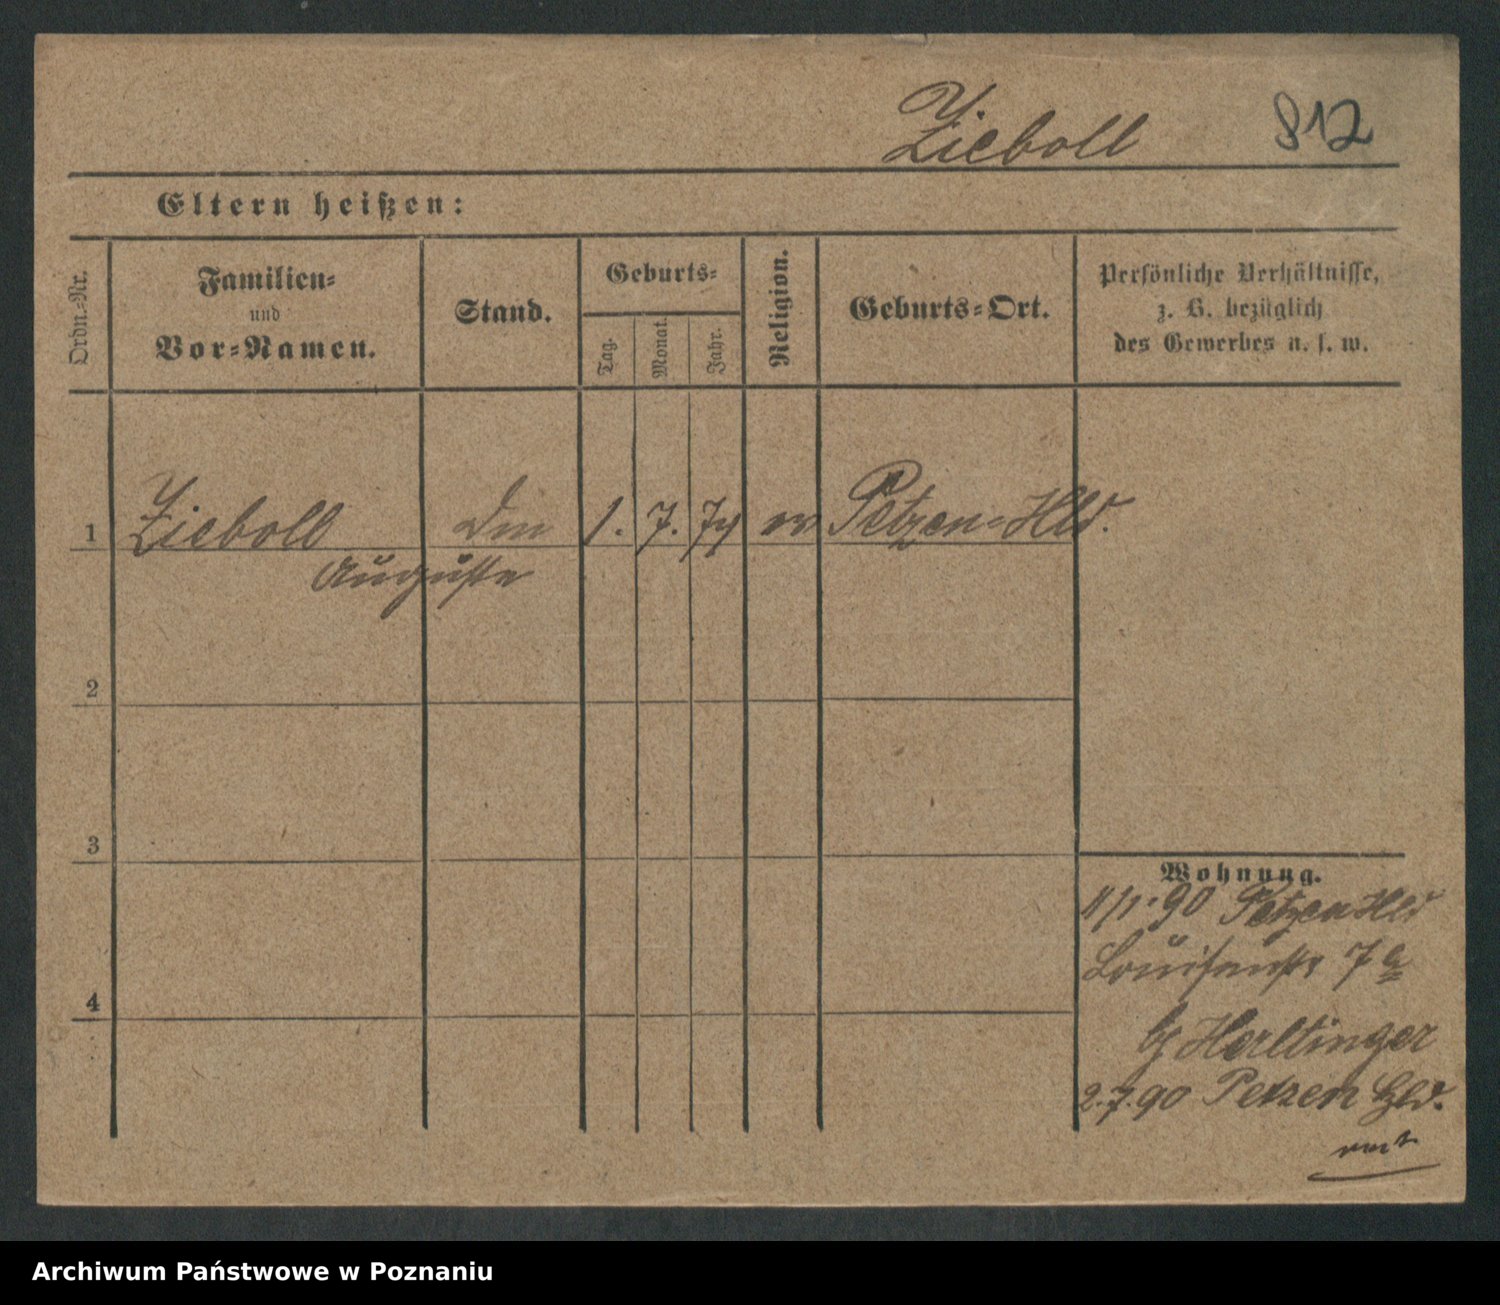 Zieboll 812
Eltern heißen:
Ordn.-Nr.
Familien-
und
Vor-Namen.
Stand.
Geburts-
Tag.
Monat.
Jahr.
Religion.
Geburts-Ort.
Persönliche Verhältnisse,
z. B. bezüglich
des Gewerbes u. s. w.
1 Zieboll 1. 7. 74 ev Petzen-Hld.
Auguste
2
3
4
Wohnung.
11/1.90 Petzen Hld
Louisenstr 7a
Herltinger
2.7.90 Petzen Hld.
Archiwum Państwowe w Poznaniu